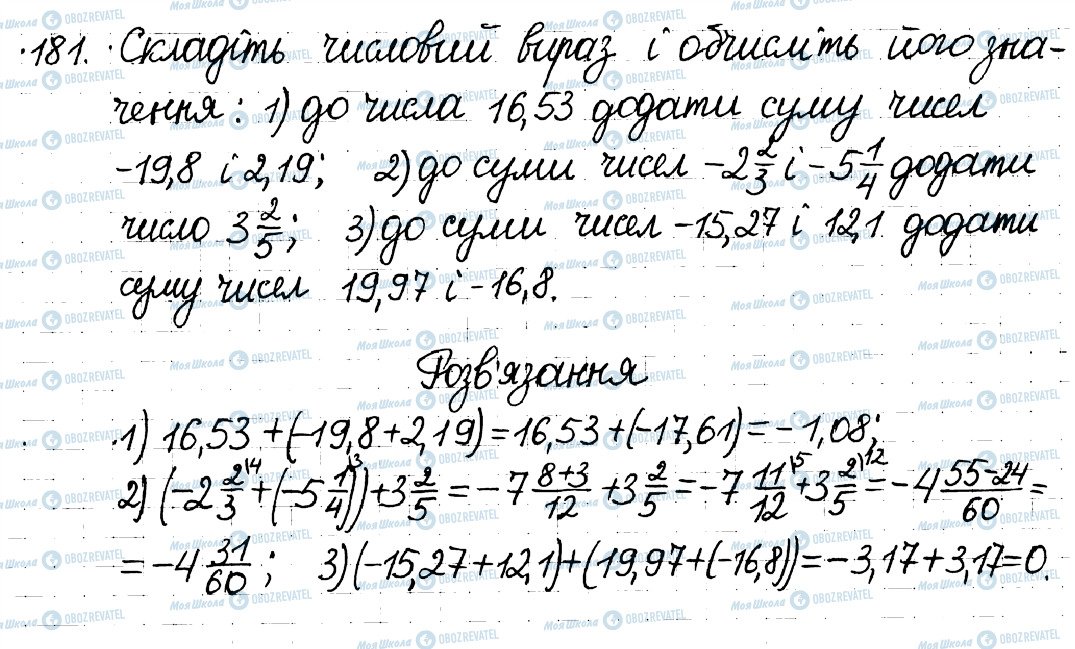 181. Складіть числовий вираз і обчисліть його зна-
чення: 1) до числа 16,53 додати суму чисел
-19,8 і 2,19; 2) до суми чисел -2 2/3 і -5 1/4 додати
число 3 2/5; 3) до суми чисел -15,27 і 12,1 додати
суму чисел 19,97 і -16,8.
Розв'язання
1) 16,53 + (-19,8 + 2,19) = 16,53 + (-17,61) = -1,08;
2) (-2 2/3 |4 + (-5 1/4 |3)) + 3 2/5 = -7 (8+3)/12 + 3 2/5 = -7 11/12 |5 + 3 2/5 |12 = -4 (55-24)/60 =
= -4 31/60; 3) (-15,27 + 12,1) + (19,97 + (-16,8)) = -3,17 + 3,17 = 0.